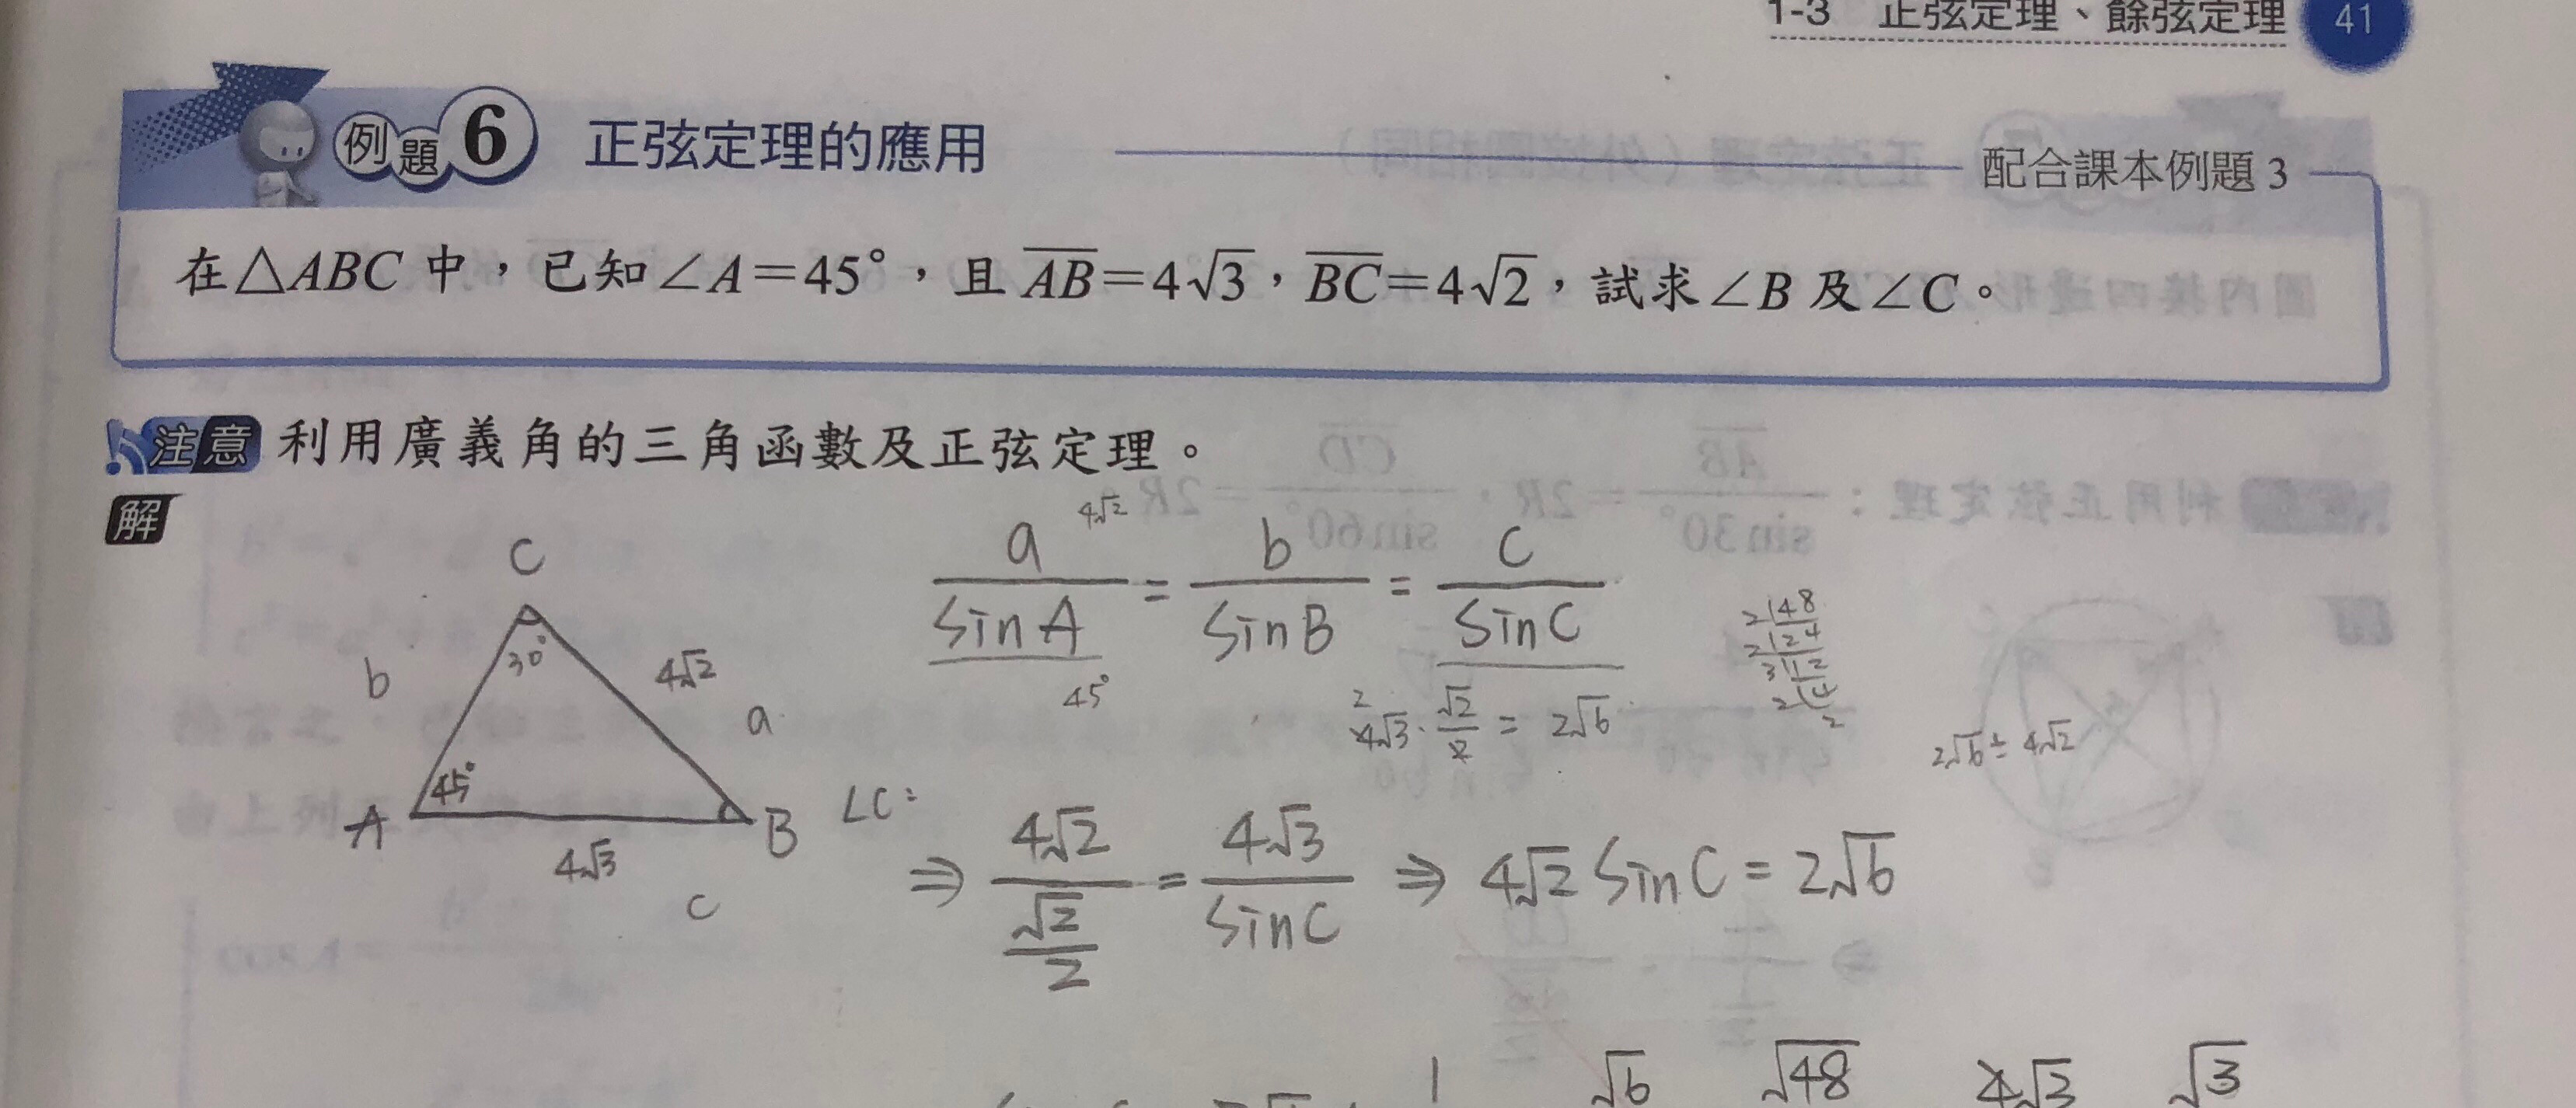 1-3 正弦定理、餘弦定理 41
例題 6 正弦定理的應用 配合課本例題 3
在△ABC 中，已知∠A=45°，且 AB=4√3，BC=4√2，試求∠B 及∠C。
注意 利用廣義角的三角函數及正弦定理。
解
4√2
a/sinA = b/sinB = c/sinC
45°
C
30°
b
4√2
a
A
45°
B
4√3
c
4√3·√2/2 = 2√6
2 48
2 24
2√6÷4√2
∠C:
⇒ 4√2/(√2/2) = 4√3/sinC ⇒ 4√2 sinC = 2√6
1 √6 √48 4√3 √3